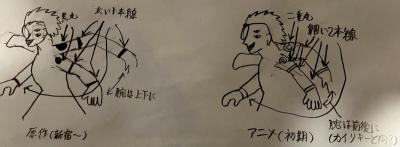 黒丸
太い1本線
腕は上下に
原作(新宿〜)
二重丸
細い2本線
腕は前後に
(カイリキーと同じ?)
アニメ(初期)